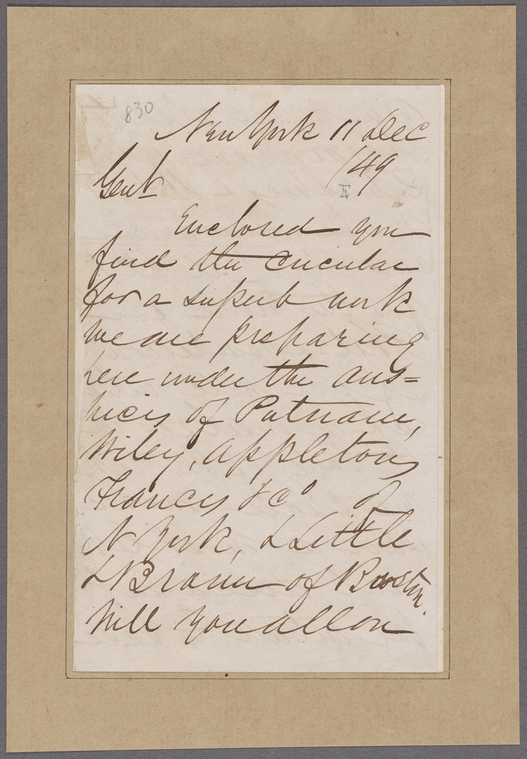 830
New York 11 Dec
/49
E
Gent
Enclosed you
find the circular
for a superb work
we are preparing
here under the aus=
pices of Putnam,
Wiley, Appleton,
Francis & Co of
N York, & Little
& Brown of Boston.
Will you allow